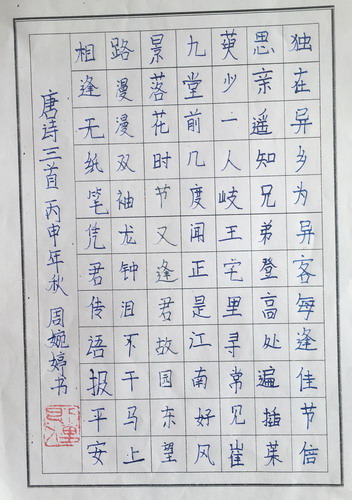 独在异乡为异客每逢佳节倍
思亲遥知兄弟登高处遍插茱
萸少一人岐王宅里寻常见崔
九堂前几度闻正是江南好风
景落花时节又逢君故园东望
路漫漫双袖龙钟泪不干马上
相逢无纸笔凭君传语报平安
唐诗三首 丙申年秋 周婉婷书